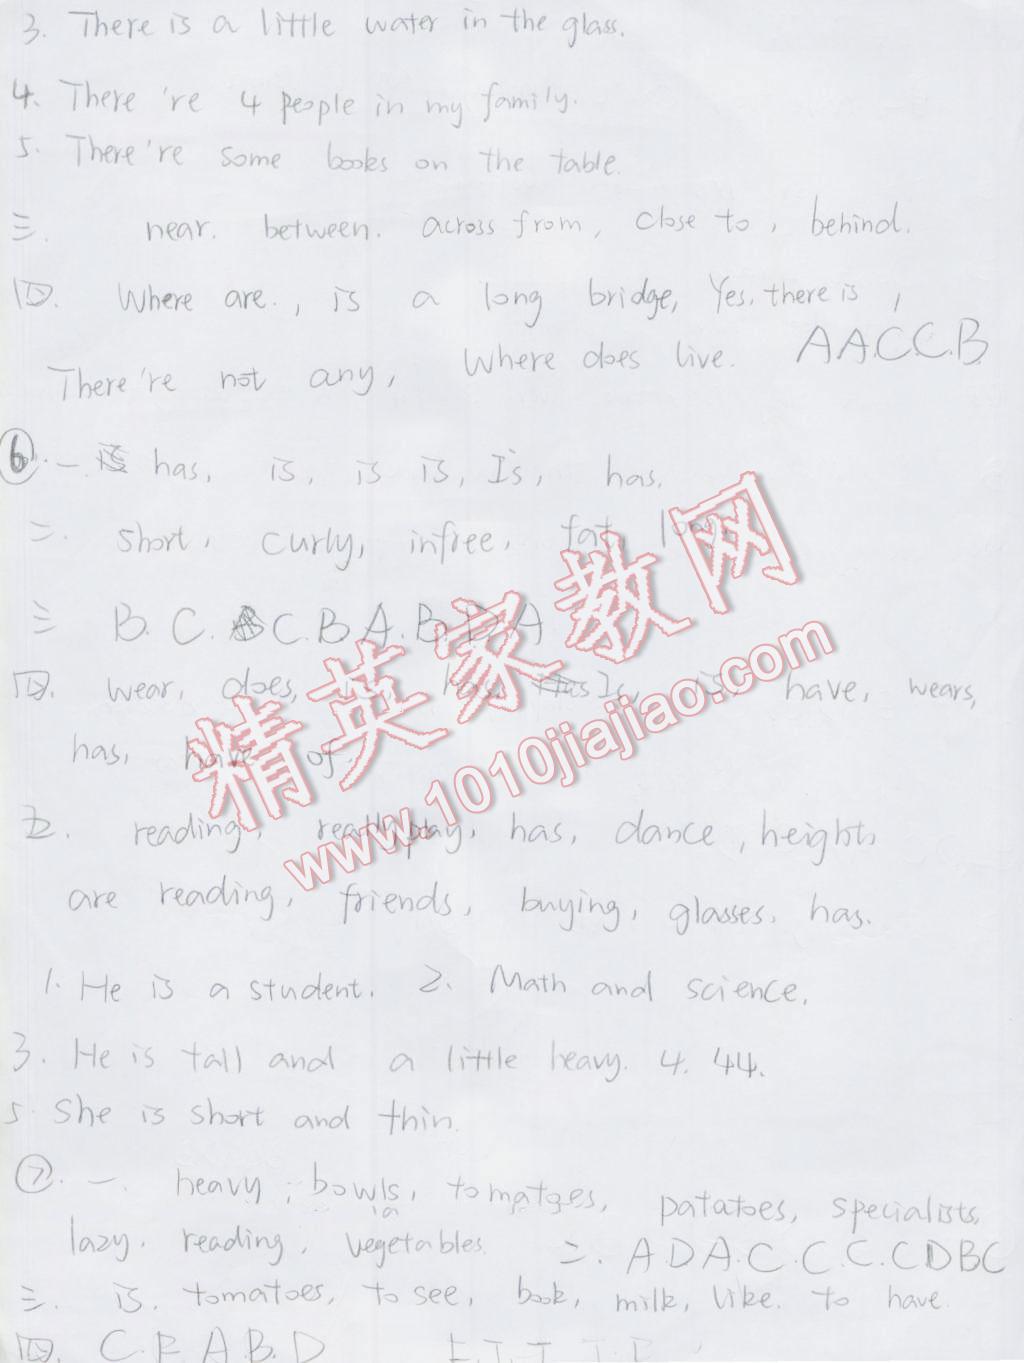 3. There is a little water in the glass.
4. There 're 4 people in my family.
5. There're some books on the table.
三. near. between. across from, close to, behind.
四. Where are., is a long bridge, Yes, there is,
There're not any, Where does live. AACCB
⑥. 一. has, is, is is, Is, has.
二. short, curly, infree, fat, long.
三 B. C. C. B A. B. D A
四. wear, does, has Is, is, have, wears,
has, have of.
五. reading, play, has, dance, height,
are reading, friends, buying, glasses. has.
1. He is a student. 2. Math and science.
3. He is tall and a little heavy. 4. 44.
5. She is short and thin.
⑦. 一. heavy, bowls, tomatoes, patatoes, specialists,
lazy. reading, vegetables. 二. A D A. C. C. C. C D B C
三. is. tomatoes, to see, book, milk, like. to have.
四. C. E. A B. D
精英家教网
www.1010jiajiao.com